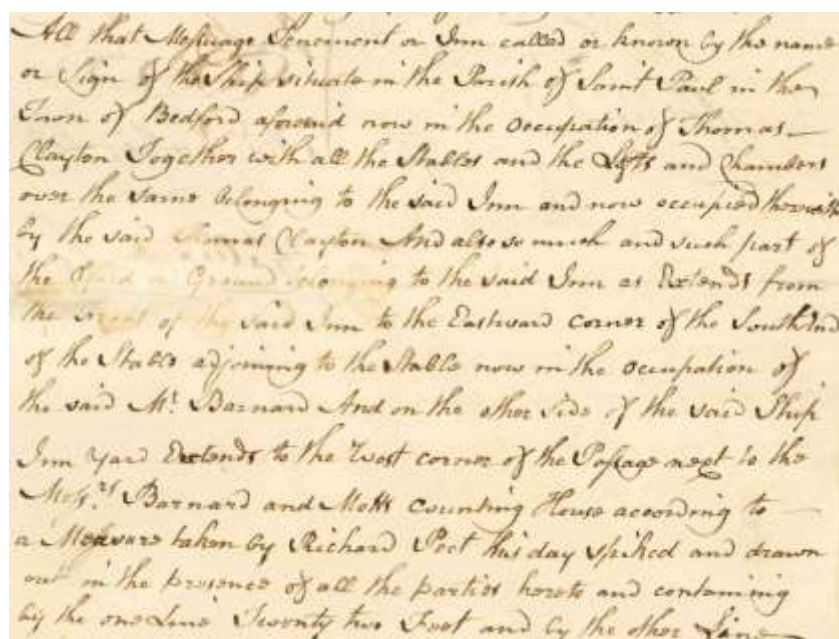 All that Messuage Tenement or Inn called or known by the name
or Sign of the Ship situate in the Parish of Saint Paul in the
Town of Bedford aforesaid now in the Occupation of Thomas
Clayton Together with all the Stables and the Lofts and Chambers
over the same belonging to the said Inn and now occupied therewith
by the said Thomas Clayton And also so much and such part of
the Yard or Ground belonging to the said Inn as Extends from
the of the said Inn to the Eastward corner of the South End
of the Stable adjoining to the Stable now in the occupation of
the said Mr. Barnard And on the other side of the said Ship
Inn Yard Extends to the West corner of the Passage next to the
Messrs. Barnard and Counting House according to
a Measure taken by Richard Peet this day spiked and drawn
out in the presence of all the parties hereto and containing
by the one Line Twenty two Feet and by the other Line